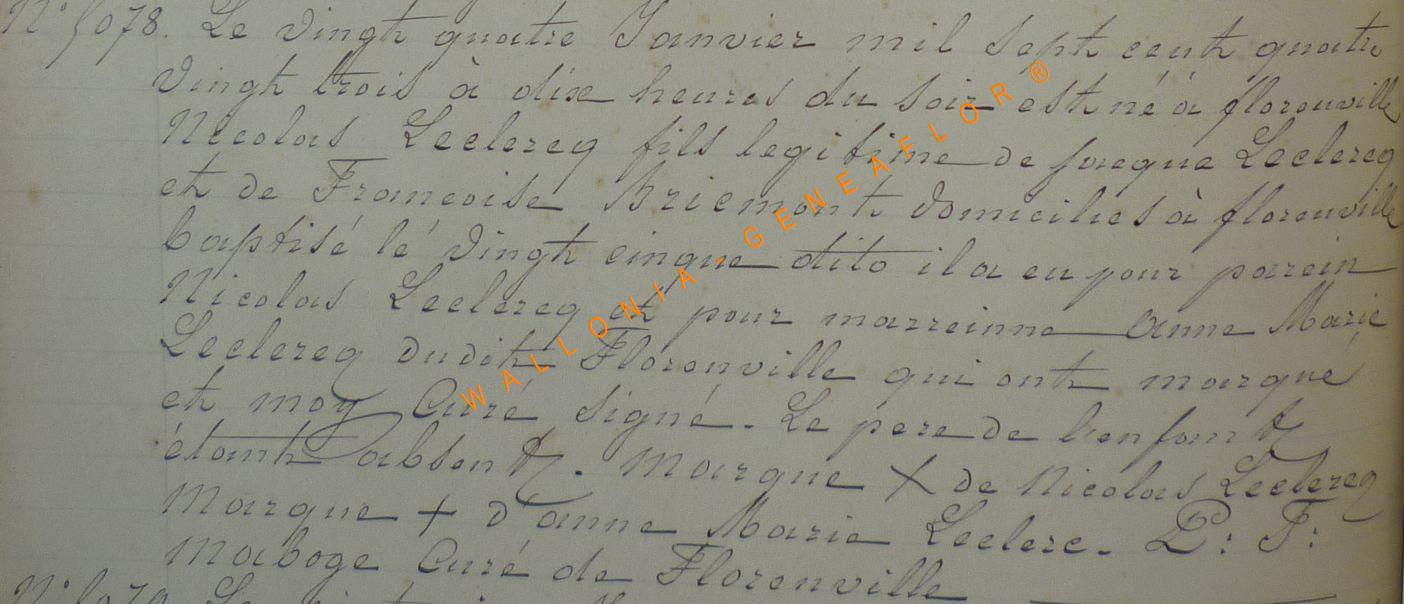 N° 6078. Le vingt quatre Janvier mil sept cent quatre
vingt trois à dix heures du soir est né à florenville
Nicolas Leclercq fils legitime de jacque Leclercq
et de Francoise Bricmont domicilies à florenville
baptisé lé vingt cinque dito il a eu pour parein
Nicolas Leclercq et pour marreinne anne Marie
Leclercq dudit Florenville qui ont marqué
et moy Curé Signé. Le pere de lenfant
étant absent. Marque + de Nicolas Leclercq
Marque + d'anne Marie Leclerc. P: F:
Maboge Curé de Florenville
WALLONIA - GENEAFLOR ®